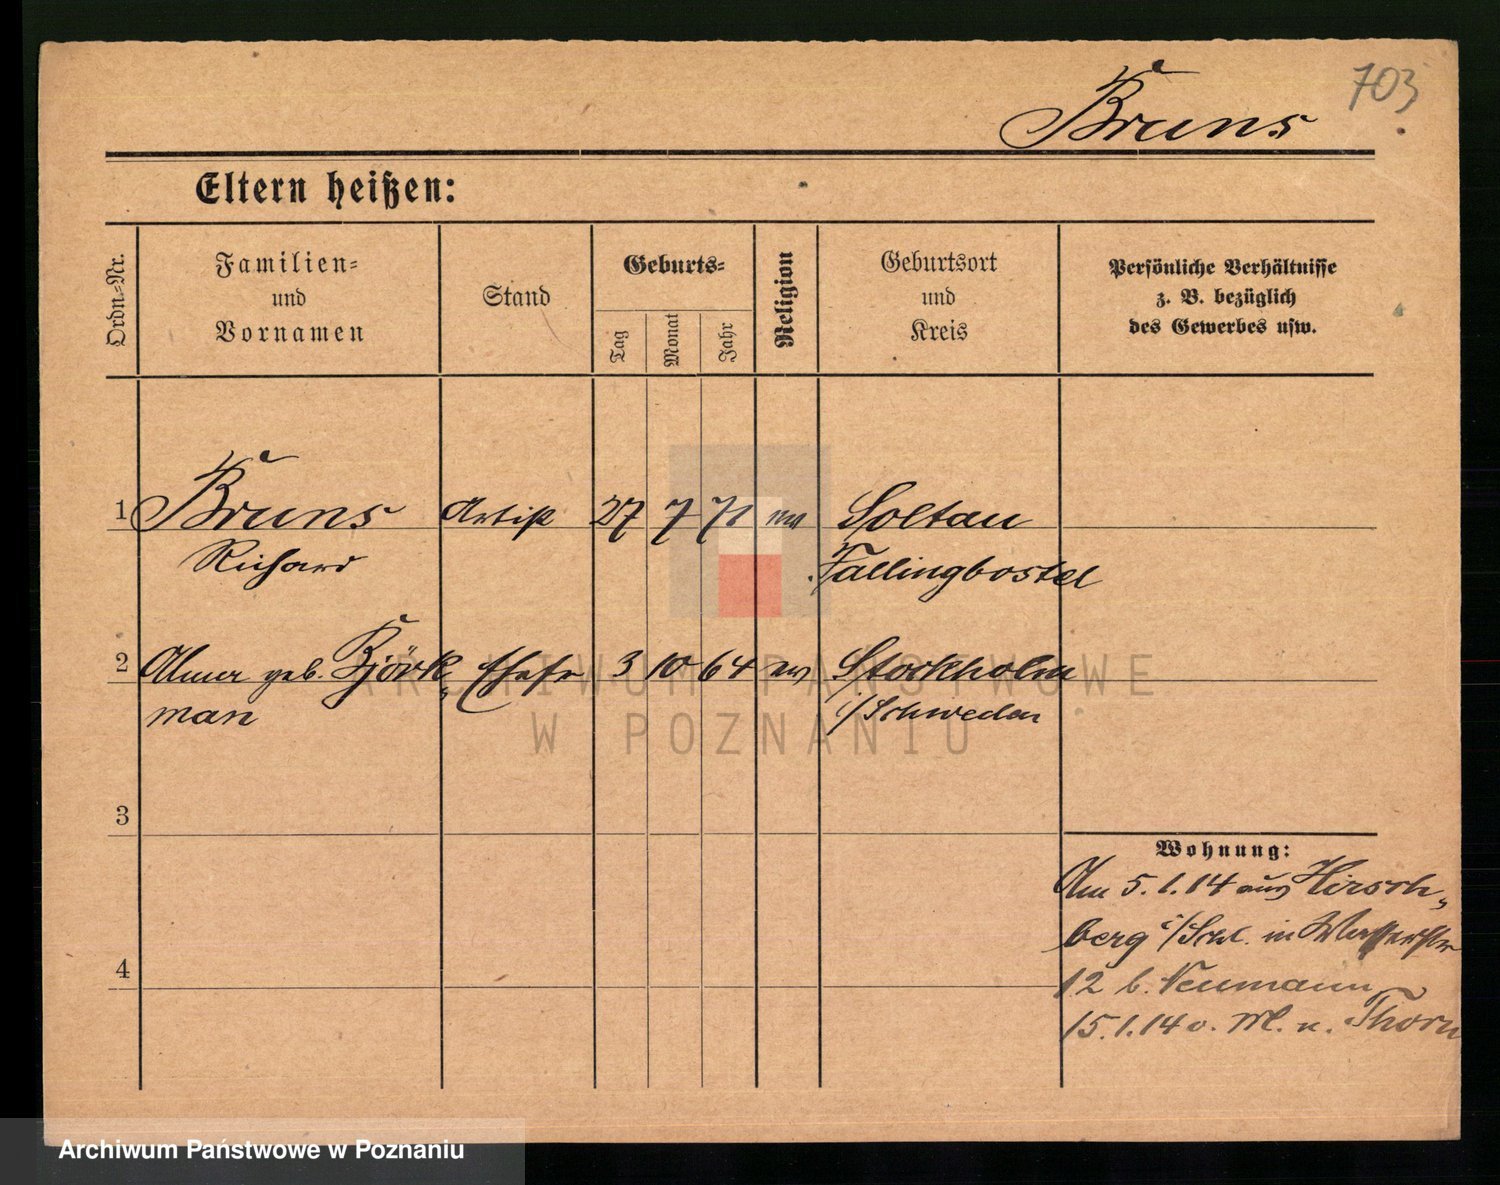 703
Bruns
Eltern heißen:
Ordn.=Nr.
Familien=
und
Vornamen
Stand
Geburts=
Tag
Monat
Jahr
Religion
Geburtsort
und
Kreis
Persönliche Verhältnisse
z. B. bezüglich
des Gewerbes usw.
1 Bruns Artist 27 7 71 ev Soltau
Richard Fallingbostel
2 Alma geb. Björk= Ehefr 3 10 64 ev Stockholm
man i/Schweden
3
4
Wohnung:
Am 5.1.14 aus Hirsch=
berg i/Schl. in Wasserstr
12 b. Neumann
15.1.14 v. M. n. Thorn
ARCHIWUM PAŃSTWOWE
W POZNANIU
Archiwum Państwowe w Poznaniu